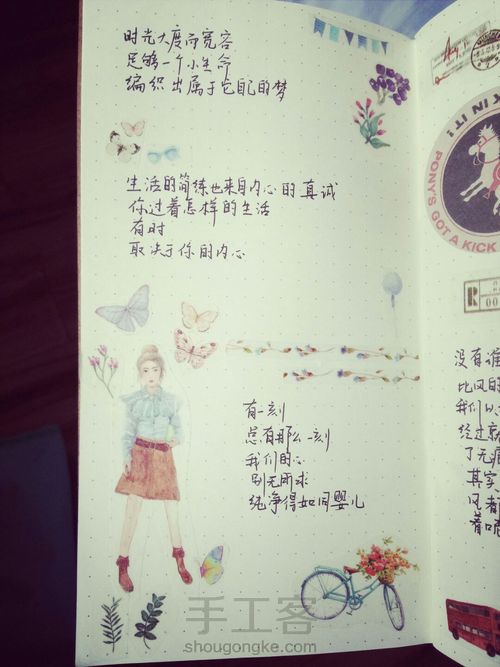 时光大度而宽容
足够一个小生命
编织出属于它自己的梦
生活的简练也来自内心的真诚
你过着怎样的生活
有时
取决于你的内心
有一刻
总有那么一刻
我们的心
别无所求
纯净得如同婴儿
K IN IT!
PONY'S GOT A KICK
R
00
没有谁
比风的
我们以
经过就
了无痕
其实
风都
着吧
手工客
shougongke.com